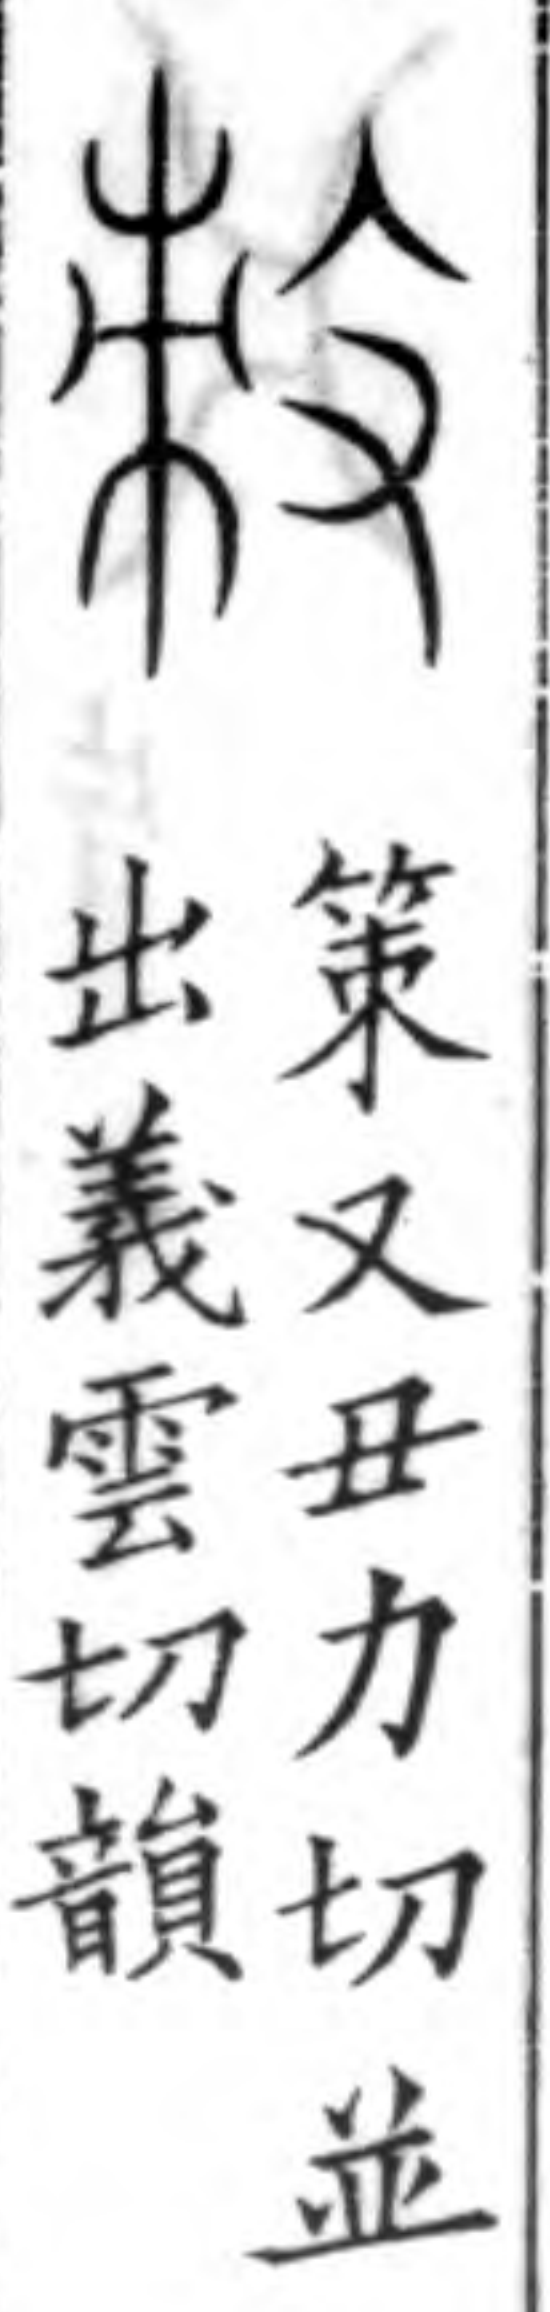 策又丑力切並
出義雲切韻